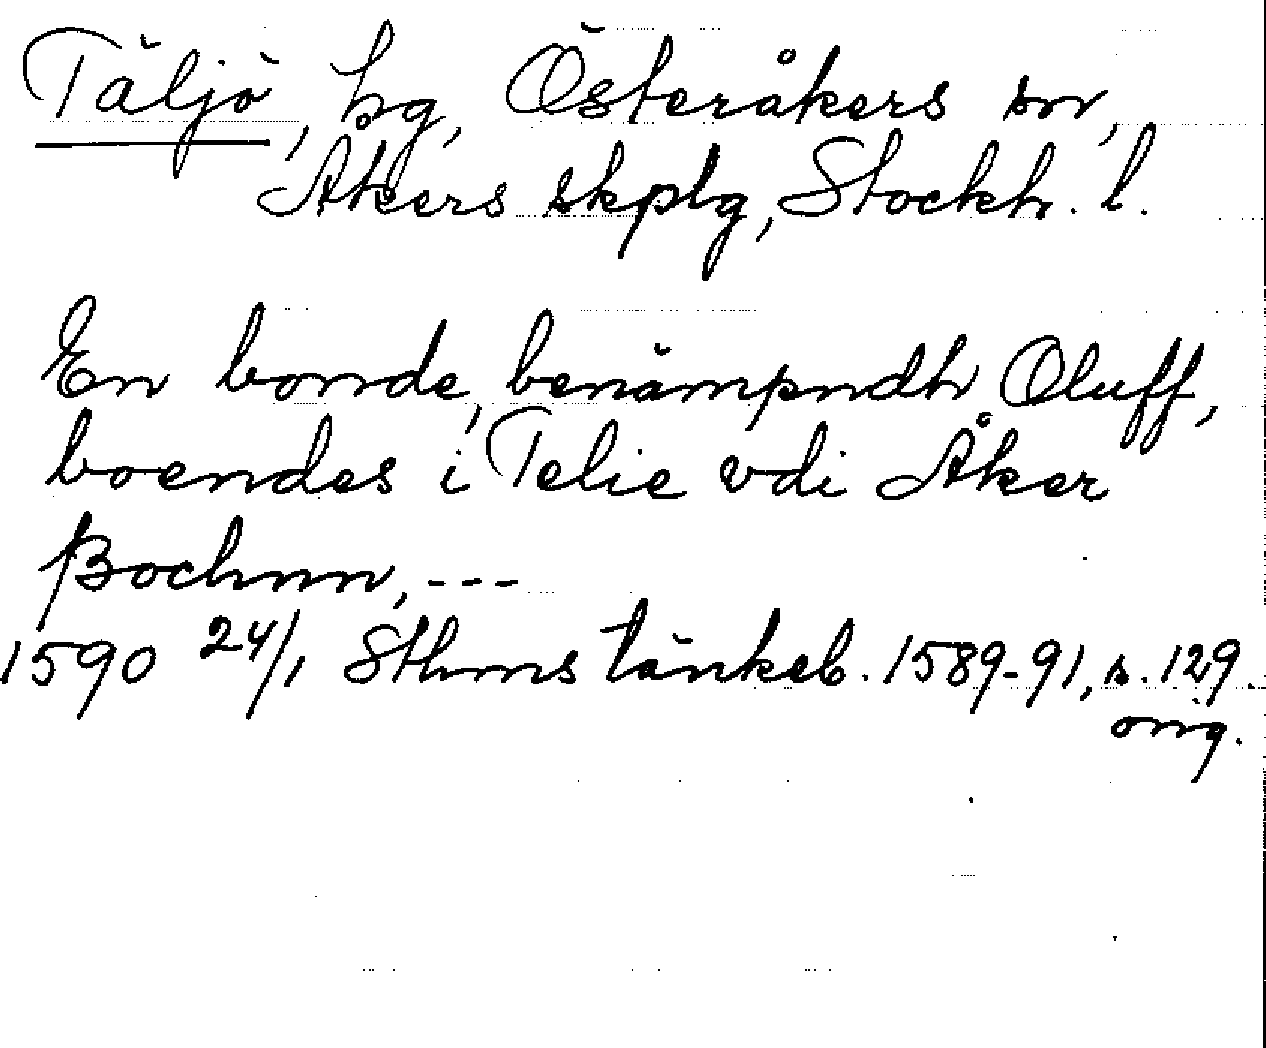 Täljö, hg, Österåkers sn,
Åkers skplg, Stockh. l.
En bonde, benämpndh Oluff,
boendes i Telie vdi Åker
ßochnn, ---
1590 24/1 Sthms tänkeb. 1589-91, s. 129.
orig.